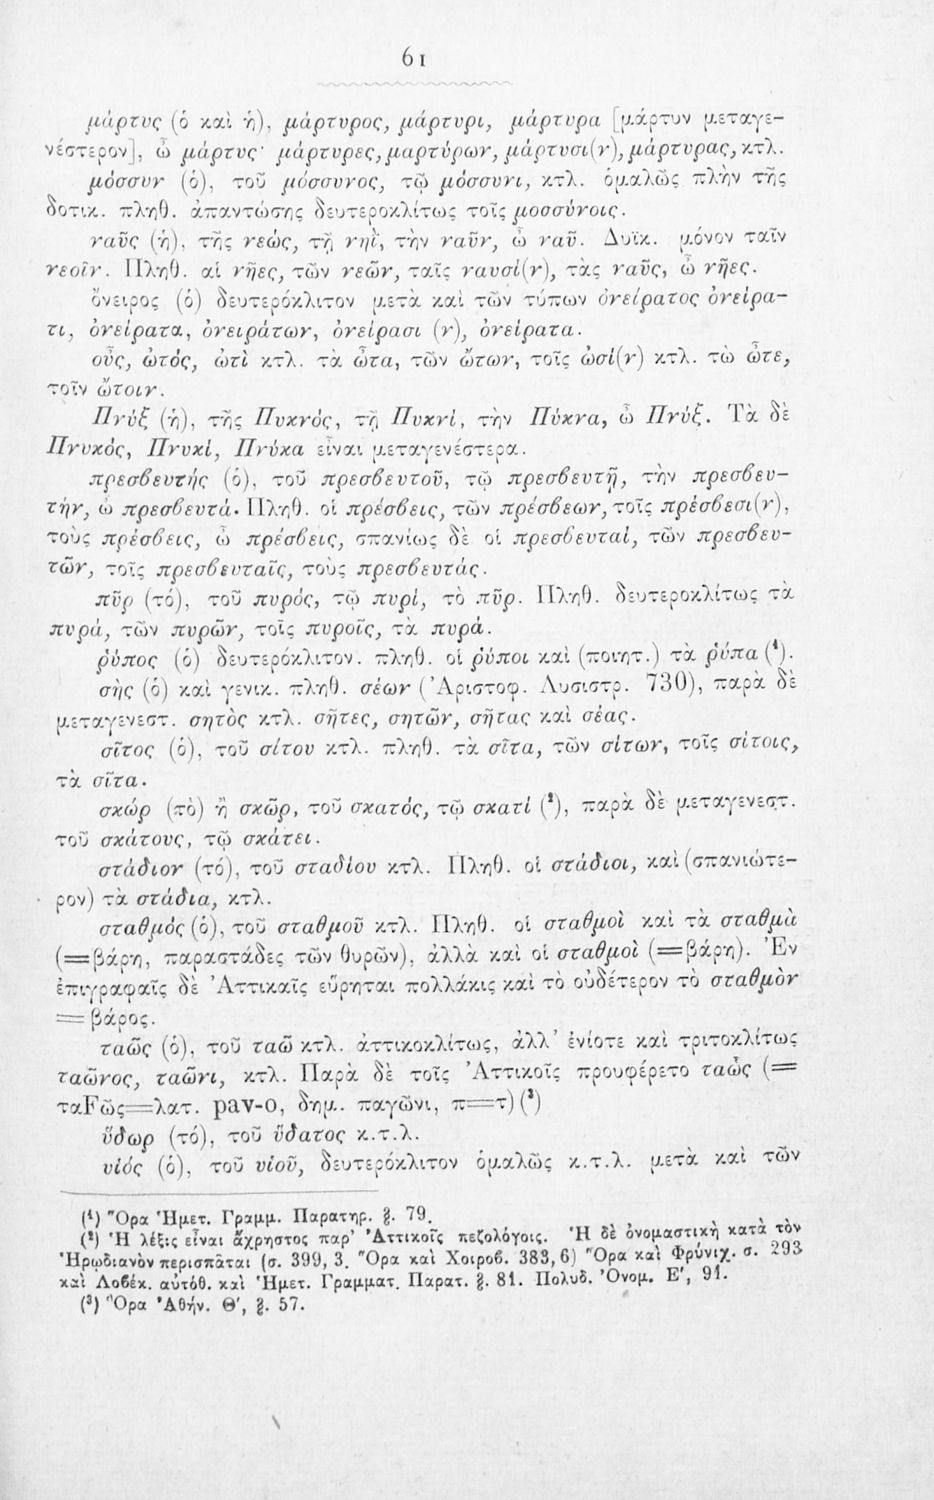 61
μάρτυς (ὁ καὶ ἡ), μάρτυρος, μάρτυρι, μάρτυρα [μάρτυν μεταγε-
νέστερον], ὦ μάρτυς· μάρτυρες, μαρτύρων, μάρτυσι(ν), μάρτυρας, κτλ.
μόσσυν (ὁ), τοῦ μόσσυνος, τῷ μόσσυνι, κτλ. ὁμαλῶς πλὴν τῆς
δοτικ. πληθ. ἀπαντώσης δευτεροκλίτως τοῖς μοσσύνοις.
ναῦς (ἡ), τῆς νεώς, τῇ νηΐ, τὴν ναῦν, ὦ ναῦ. Δυϊκ. μόνον ταῖν
νεοῖν. Πληθ. αἱ νῆες, τῶν νεῶν, ταῖς ναυσί(ν), τὰς ναῦς, ὦ νῆες.
ὄνειρος (ὁ) δευτερόκλιτον μετὰ καὶ τῶν τύπων ὀνείρατος ὀνείρα-
τι, ὀνείρατα, ὀνειράτων, ὀνείρασι (ν), ὀνείρατα.
οὖς, ὠτός, ὠτὶ κτλ. τὰ ὦτα, τῶν ὤτων, τοῖς ὠσί(ν) κτλ. τὼ ὦτε,
τοῖν ὤτοιν.
Πνύξ (ἡ), τῆς Πυκνός, τῇ Πυκνί, τὴν Πύκνα, ὦ Πνύξ. Τὰ δὲ
Πνυκός, Πνυκί, Πνύκα εἶναι μεταγενέστερα.
πρεσβευτής (ὁ), τοῦ πρεσβευτοῦ, τῷ πρεσβευτῇ, τὴν πρεσβευ-
τήν, ὦ πρεσβευτά. Πληθ. οἱ πρέσβεις, τῶν πρέσβεων, τοῖς πρέσβεσι(ν),
τοὺς πρέσβεις, ὦ πρέσβεις, σπανίως δὲ οἱ πρεσβευταί, τῶν πρεσβευ-
τῶν, τοῖς πρεσβευταῖς, τοὺς πρεσβευτάς.
πῦρ (τό), τοῦ πυρός, τῷ πυρί, τὸ πῦρ. Πληθ. δευτεροκλίτως τὰ
πυρά, τῶν πυρῶν, τοῖς πυροῖς, τὰ πυρά.
ῥύπος (ὁ) δευτερόκλιτον. πληθ. οἱ ῥύποι καὶ (ποιητ.) τὰ ῥύπα (¹).
σὴς (ὁ) καὶ γενικ. πληθ. σέων (Ἀριστοφ. Λυσιστρ. 730), παρὰ δὲ
μεταγενεστ. σητὸς κτλ. σῆτες, σητῶν, σῆτας καὶ σέας.
σῖτος (ὁ), τοῦ σίτου κτλ. πληθ. τὰ σῖτα, τῶν σίτων, τοῖς σίτοις,
τὰ σῖτα.
σκώρ (τὸ) ἢ σκῶρ, τοῦ σκατός, τῷ σκατί (²), παρὰ δὲ μεταγενεστ.
τοῦ σκάτους, τῷ σκάτει.
στάδιον (τό), τοῦ σταδίου κτλ. Πληθ. οἱ στάδιοι, καὶ (σπανιώτε-
ρον) τὰ στάδια, κτλ.
σταθμός (ὁ), τοῦ σταθμοῦ κτλ. Πληθ. οἱ σταθμοὶ καὶ τὰ σταθμὰ
(=βάρη, παραστάδες τῶν θυρῶν), ἀλλὰ καὶ οἱ σταθμοὶ (=βάρη). Ἐν
ἐπιγραφαῖς δὲ Ἀττικαῖς εὕρηται πολλάκις καὶ τὸ οὐδέτερον τὸ σταθμὸν
= βάρος.
ταῶς (ὁ), τοῦ ταῶ κτλ. ἀττικοκλίτως, ἀλλ' ἐνίοτε καὶ τριτοκλίτως
ταῶνος, ταῶνι, κτλ. Παρὰ δὲ τοῖς Ἀττικοῖς προυφέρετο ταὧς (=
ταFῶς=λατ. pav-o, δημ. παγῶνι, π=τ) (³)
ὕδωρ (τό), τοῦ ὕδατος κ.τ.λ.
υἱός (ὁ), τοῦ υἱοῦ, δευτερόκλιτον ὁμαλῶς κ.τ.λ. μετὰ καὶ τῶν
(¹) Ὅρα Ἡμετ. Γραμμ. Παρατηρ. §. 79.
(²) Ἡ λέξις εἶναι ἄχρηστος παρ' Ἀττικοῖς πεζολόγοις. Ἡ δὲ ὀνομαστικὴ κατὰ τὸν
Ἡρῳδιανὸν περισπᾶται (σ. 399, 3. Ὅρα καὶ Χοιροβ. 383, 6) Ὅρα καὶ Φρύνιχ. σ. 293
καὶ Λοβέκ. αὐτόθ. καὶ Ἡμετ. Γραμματ. Παρατ. §. 81. Πολυδ. Ὀνομ. Ε', 91.
(³) Ὅρα Ἀθήν. Θ', §. 57.